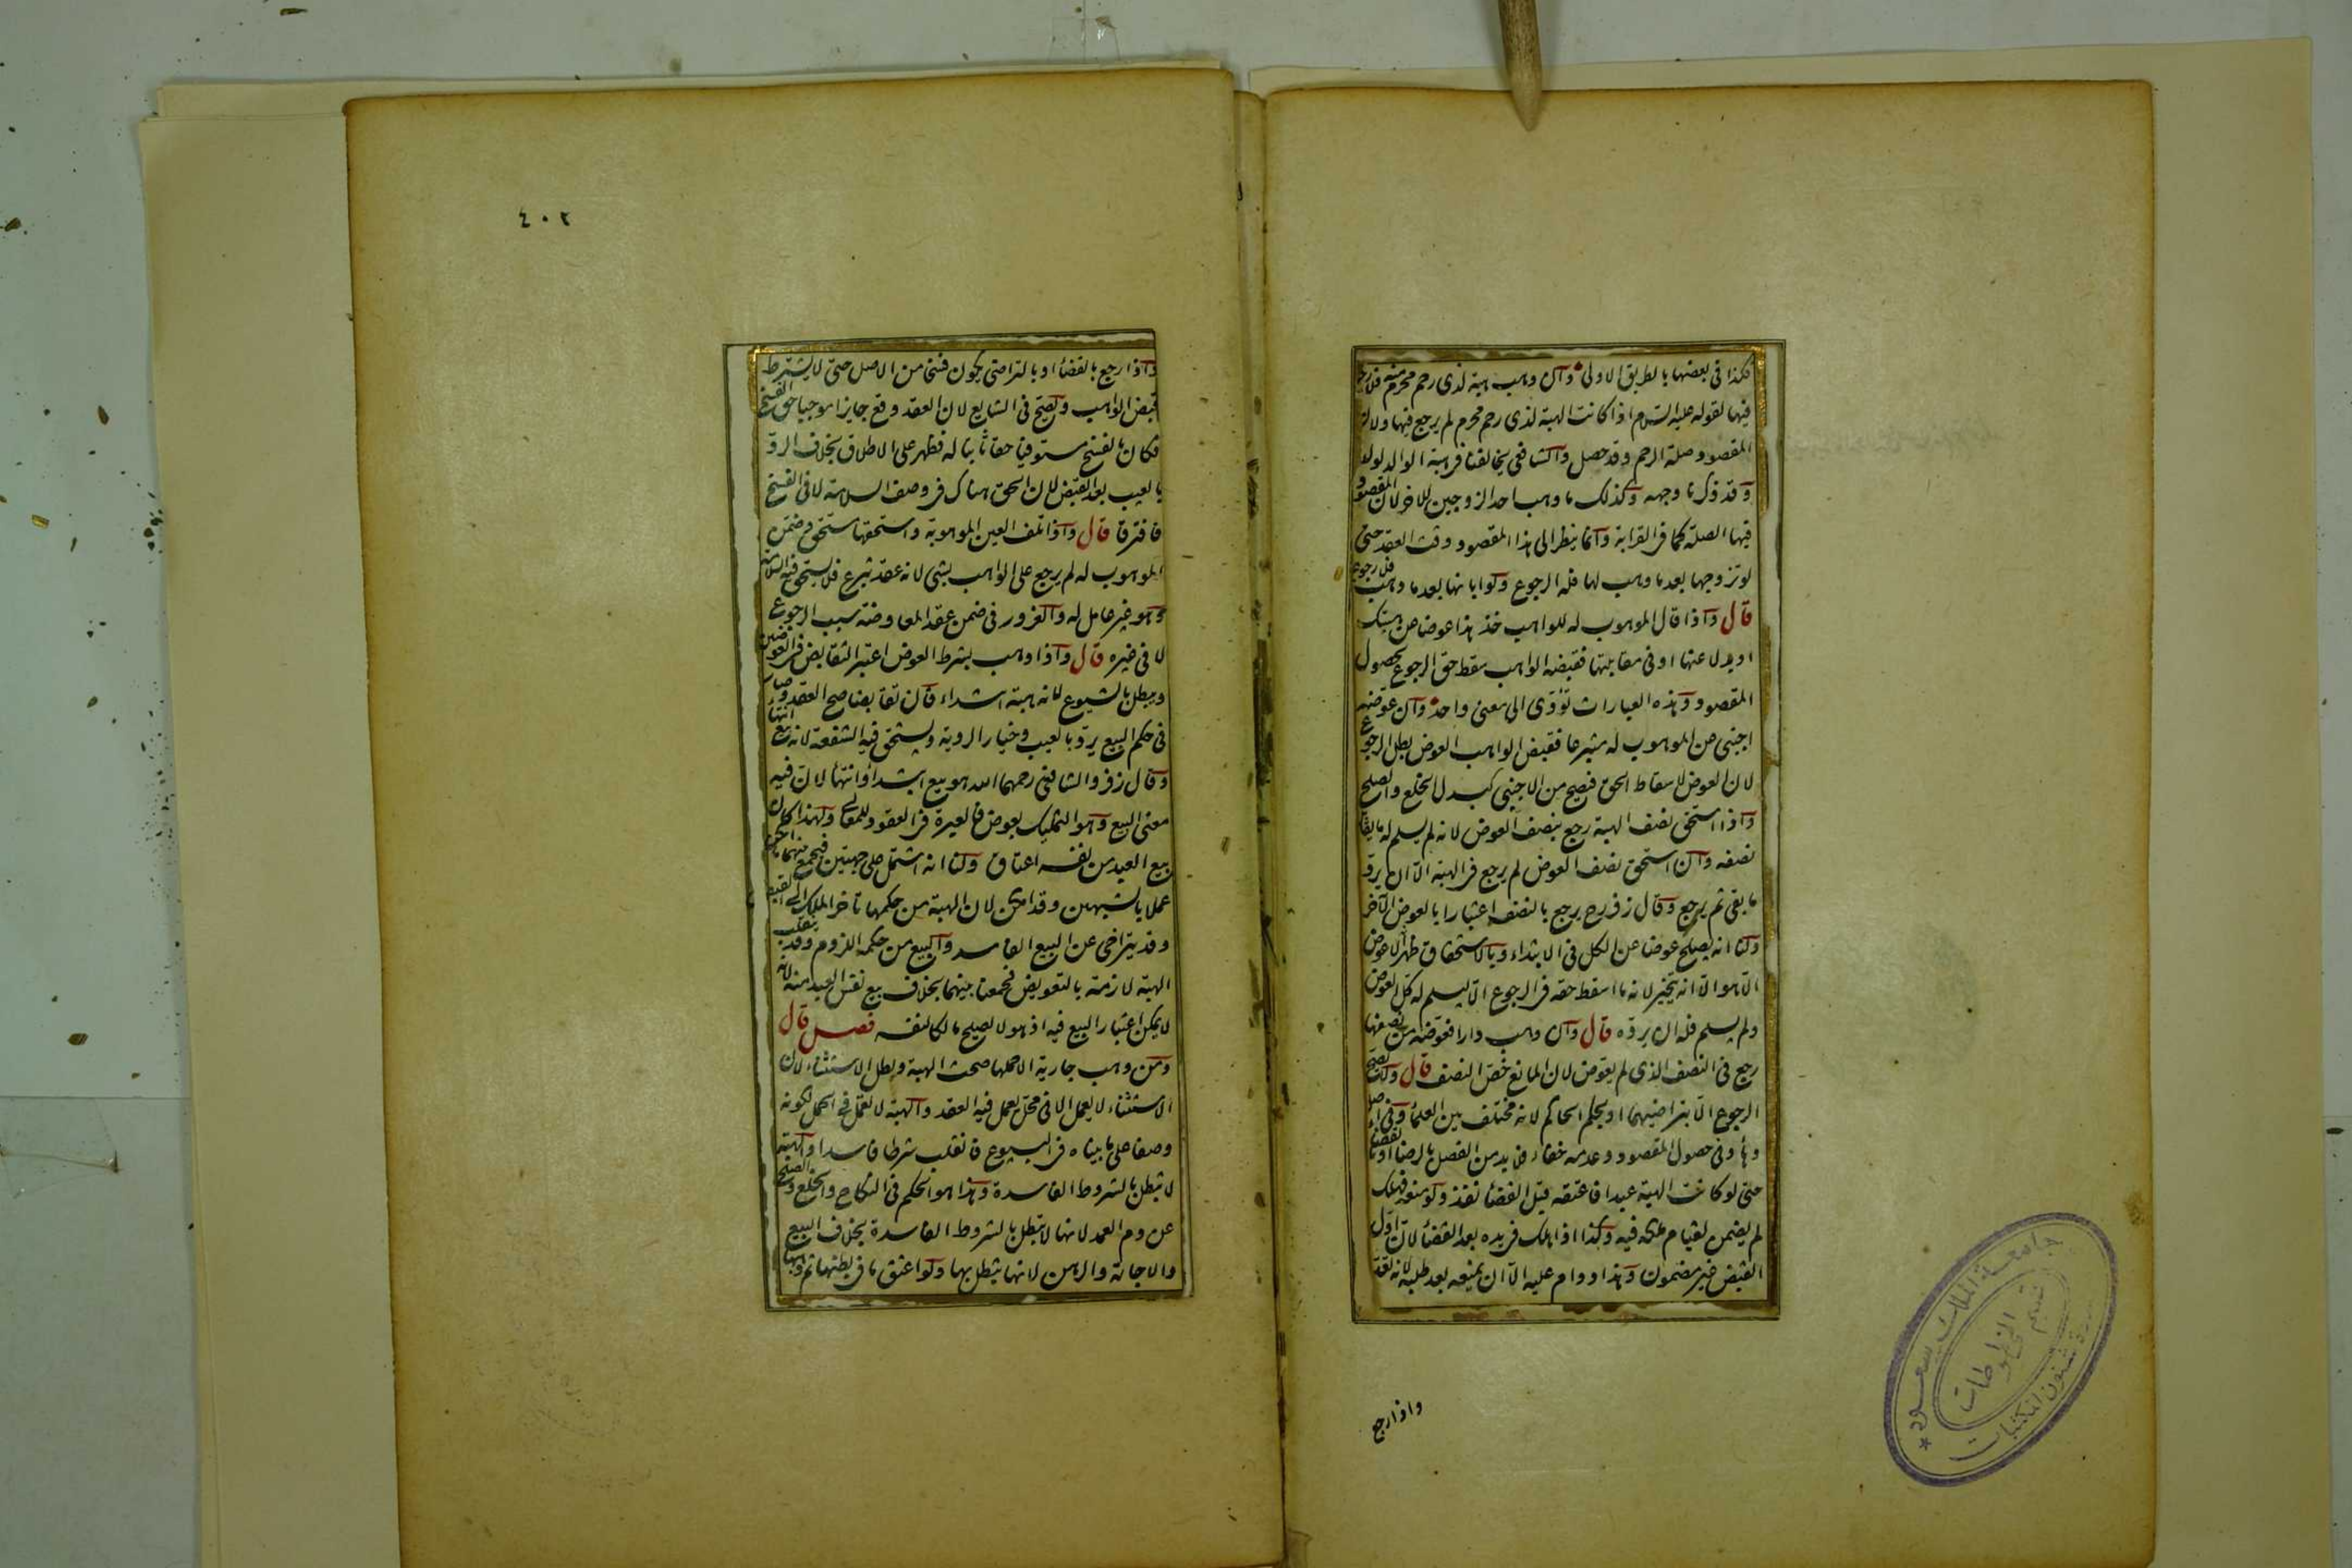 فكذا فى بعضها بالطريق الاولى وان وهب هبة لذى رحم محرم منه فلا رجوع
فيها لقوله عليه السلام اذا كانت الهبة لذى رحم محرم لم يرجع فيها ولان
المقصود صلة الرحم وقد حصل والشافعى يخالفنا فى هبة الوالد لولده
وقد ذكرنا وجهه وكذلك ما وهب احد الزوجين للاخر لان المقصود
فيها الصلة كما فى القرابة وانما ينظر الى هذا المقصود وقت العقد حتى
لو تزوجها بعد ما وهب لها فله الرجوع ولو ابانها بعد ما وهب فلا رجوع
قال واذا قال الموهوب له للواهب خذ هذا عوضا عن هبتك
او بدلا عنها او فى مقابلتها فقبضه الواهب سقط حق الرجوع لحصول
المقصود وهذه العبارات تؤدى الى معنى واحد وان عوضه
اجنبى عن الموهوب له متبرعا فقبض الواهب العوض بطل الرجوع
لان العوض لاسقاط الحق فصح من الاجنبى كبدل الخلع والصلح
واذا استحق نصف الهبة رجع بنصف العوض لانه لم يسلم له ما يقابل
نصفه وان استحق نصف العوض لم يرجع فى الهبة الا ان يرد
ما بقى ثم يرجع وقال زفر رح يرجع بالنصف اعتبارا بالعوض الآخر
ولنا انه يصلح عوضا عن الكل فى الابتداء وبالاستحقاق ظهر ان لا عوض
الا هو الا انه يتخير لانه ما اسقط حقه فى الرجوع الا ليسلم له كل العوض
ولم يسلم فله ان يرده قال وان وهب دارا فعوضه من نصفها
رجع فى النصف الذى لم يعوض لان المانع خص النصف قال ولا يصح
الرجوع الا بتراضيهما او بحكم الحاكم لانه مختلف بين العلماء وفى اصله
وهاء وفى حصول المقصود وعدمه خفاء فلا بد من الفصل بالرضا او بالقضاء
حتى لو كانت الهبة عبدا فاعتقه قبل القضاء نفذ ولو منعه فهلك
لم يضمن لقيام ملكه فيه وكذا اذا هلك فى يده بعد القضاء لان اول
القبض غير مضمون وهذا دوام عليه الا ان يمنعه بعد طلبه لانه تعد
واذا رجع
٤٠٢
واذا رجع بالقضاء او بالتراضى يكون فسخا من الاصل حتى لا يشترط
قبض الواهب ويصح فى الشايع لان العقد وقع جايزا موجبا حق الفسخ
فكان بالفسخ مستوفيا حقا ثابتا له فظهر على الاطلاق بخلاف الرد
بالعيب بعد القبض لان الحق هناك فى وصف السلامة لا فى الفسخ
فافترقا قال واذا تلف العين الموهوبة واستحقها مستحق وضمن
الموهوب له لم يرجع على الواهب بشى لانه عقد تبرع فلا يستحق فيه السلامة
وهو غير عامل له والغرور فى ضمن عقد المعاوضة سبب الرجوع
لا فى غيره قال واذا وهب بشرط العوض اعتبر التقابض فى العوضين
ويبطل بالشيوع لانه هبة ابتداء فان تقابضا صح العقد وصار
فى حكم البيع يرد بالعيب وخيار الروية ويستحق فيه الشفعة لانه بيع انتهاء
وقال زفر والشافعى رحمهما الله هو بيع ابتداء وانتهاء لان فيه
معنى البيع وهو التمليك بعوض فالعبرة فى العقود للمعانى ولهذا كان
بيع العبد من نفسه اعتاق ولنا انه اشتمل على جهتين فيجمع بينهما ما امكن
عملا بالشبهين وقد امكن لان الهبة من حكمها تاخر الملك الى القبض
وقد يتراخى عن البيع الفاسد والبيع من حكمه اللزوم وقد ينقلب
الهبة لازمة بالتعويض فجمعنا بينهما بخلاف بيع نفس العبد منه لانه
لا يمكن اعتبار البيع فيه اذ هو لا يصلح مالكا لنفسه فصل قال
ومن وهب جارية الا حملها صحت الهبة وبطل الاستثناء لان
الاستثناء لا يعمل الا فى محل يعمل فيه العقد والهبة لا تعمل فى الحمل لكونه
وصفا على ما بيناه فى البيوع فانقلب شرطا فاسدا والهبة
لا تبطل بالشروط الفاسدة وهذا هو الحكم فى النكاح والخلع والصلح
عن دم العمد لانها لا تبطل بالشروط الفاسدة بخلاف البيع
والاجارة والرهن لانها تبطل بها ولو اعتق ما فى بطنها ثم وهبها
جامعة الملك سعود
قسم المخطوطات
شئون المكتبات